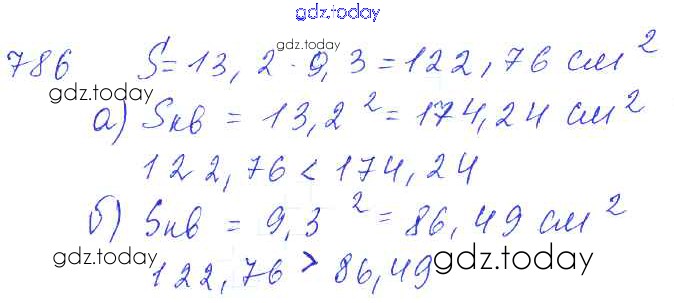 gdz.today
786 S = 13,2 · 9,3 = 122,76 см²
gdz.today
gdz.today
а) Sкв = 13,2² = 174,24 см²
122,76 < 174,24
б) Sкв = 9,3² = 86,49 см²
122,76 > 86,49
gdz.today
gdz.today